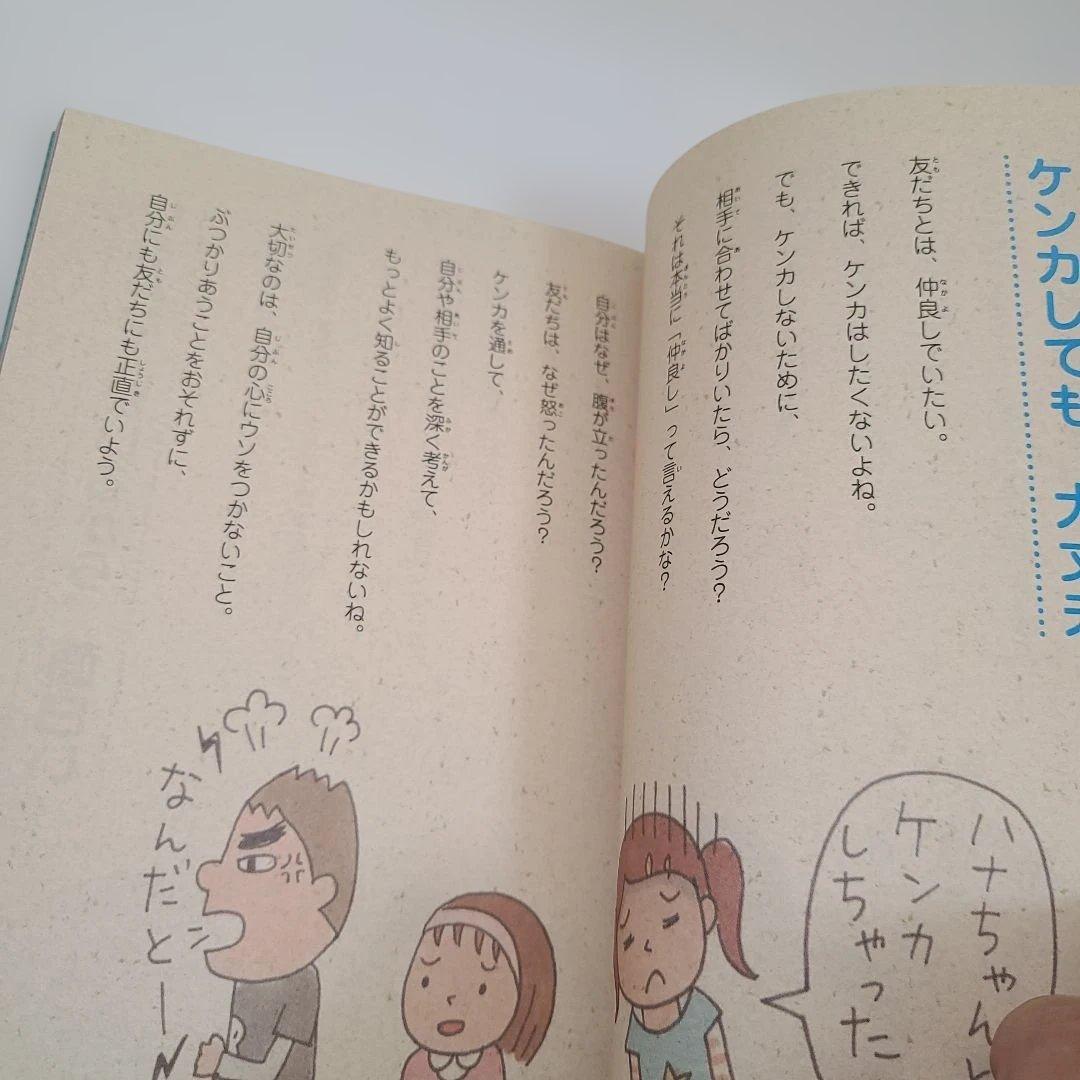 ケンカしても
友だちとは、仲良しでいたい。
できれば、ケンカはしたくないよね。
でも、ケンカしないために、
相手に合わせてばかりいたら、どうだろう？
それは本当に「仲良し」って言えるかな？
ハナちゃんと
ケンカ
しちゃった
自分はなぜ、腹が立ったんだろう？
友だちは、なぜ怒ったんだろう？
ケンカを通して、
自分や相手のことを深く考えて、
もっとよく知ることができるかもしれないね。
大切なのは、自分の心にウソをつかないこと。
ぶつかりあうことをおそれずに、
自分にも友だちにも正直でいよう。
なんだとー